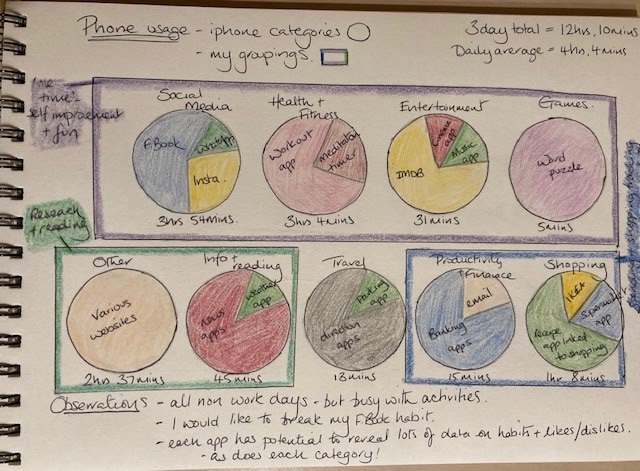 Phone usage - iphone categories
- my groupings
3 day total = 12hrs, 10mins
Daily average = 4hrs, 4mins
me
time =
self improvement
+ fun
Social
Media
FBook
WhatsApp
Insta.
3hrs 54mins
Health +
Fitness
Workout
app
meditation
timer
3hrs 4mins
Entertainment
IMDB
app
Music
app
31mins
Games
Word
puzzle
5mins
Research
+ reading
Other
Various
websites
2hrs 37mins
Info +
reading
news
apps
weather
app
45mins
Travel
Parking
app
direction
apps
13mins
Productivity
+ Finance
email
Banking
apps
15mins
Shopping
IKEA
Supermarket
app
Recipe
app linked
to shopping
1hr 8mins
Observations - all non work days - but busy with activities.
- I would like to break my FBook habit.
- each app has potential to reveal lots of data on habits + likes/dislikes.
- as does each category!